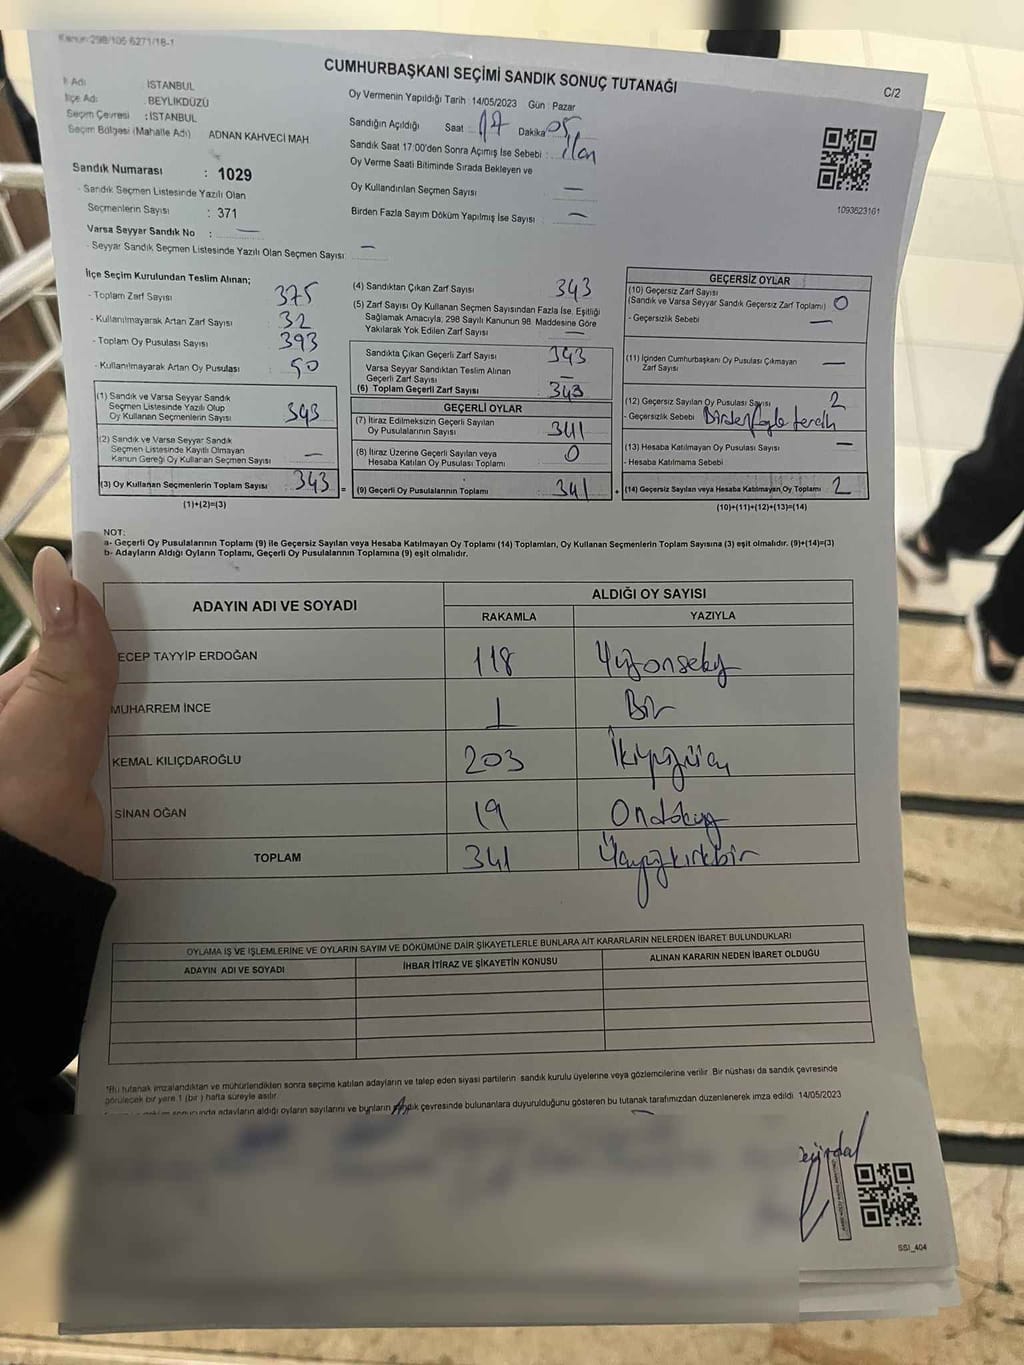 Kanun:298/105 6271/18-1
CUMHURBAŞKANI SEÇİMİ SANDIK SONUÇ TUTANAĞI
C/2
İl Adı : İSTANBUL
İlçe Adı : BEYLİKDÜZÜ
Seçim Çevresi : İSTANBUL
Seçim Bölgesi (Mahalle Adı) ADNAN KAHVECİ MAH
Sandık Numarası : 1029
- Sandık Seçmen Listesinde Yazılı Olan
Seçmenlerin Sayısı : 371
Varsa Seyyar Sandık No : —
- Seyyar Sandık Seçmen Listesinde Yazılı Olan Seçmen Sayısı: —
Oy Vermenin Yapıldığı Tarih 14/05/2023 Gün : Pazar
Sandığın Açıldığı Saat : 17 Dakika 05
Sandık Saat 17:00'den Sonra Açımış İse Sebebi :
Oy Verme Saati Bitiminde Sırada Bekleyen ve
Oy Kullandırılan Seçmen Sayısı —
Birden Fazla Sayım Döküm Yapılmış İse Sayısı : —
1093623161
İlçe Seçim Kurulundan Teslim Alınan;
- Toplam Zarf Sayısı 375
- Kullanılmayarak Artan Zarf Sayısı 32
- Toplam Oy Pusulası Sayısı 393
- Kullanılmayarak Artan Oy Pusulası 50
(1) Sandık ve Varsa Seyyar Sandık
Seçmen Listesinde Yazılı Olup
Oy Kullanan Seçmenlerin Sayısı 343
(2) Sandık ve Varsa Seyyar Sandık
Seçmen Listesinde Kayıtlı Olmayan
Kanun Gereği Oy Kullanan Seçmen Sayısı —
(3) Oy Kullanan Seçmenlerin Toplam Sayısı 343 =
(1)+(2)=(3)
(4) Sandıktan Çıkan Zarf Sayısı 343
(5) Zarf Sayısı Oy Kullanan Seçmen Sayısından Fazla İse, Eşitliği
Sağlamak Amacıyla, 298 Sayılı Kanunun 98. Maddesine Göre
Yakılarak Yok Edilen Zarf Sayısı —
Sandıkta Çıkan Geçerli Zarf Sayısı 343
Varsa Seyyar Sandıktan Teslim Alınan
Geçerli Zarf Sayısı —
(6) Toplam Geçerli Zarf Sayısı 343
GEÇERLİ OYLAR
(7) İtiraz Edilmeksizin Geçerli Sayılan
Oy Pusulalarının Sayısı 341
(8) İtiraz Üzerine Geçerli Sayılan veya
Hesaba Katılan Oy Pusulası Toplamı 0
(9) Geçerli Oy Pusulalarının Toplamı 341 +
GEÇERSİZ OYLAR
(10) Geçersiz Zarf Sayısı
(Sandık ve Varsa Seyyar Sandık Geçersiz Zarf Toplamı) 0
- Geçersizlik Sebebi —
(11) İçinden Cumhurbaşkanı Oy Pusulası Çıkmayan
Zarf Sayısı —
(12) Geçersiz Sayılan Oy Pusulası Sayısı 2
- Geçersizlik Sebebi Birden fazla tercih
(13) Hesaba Katılmayan Oy Pusulası Sayısı —
- Hesaba Katılmama Sebebi
(14) Geçersiz Sayılan veya Hesaba Katılmayan Oy Toplamı 2
(10)+(11)+(12)+(13)=(14)
NOT:
a- Geçerli Oy Pusulalarının Toplamı (9) ile Geçersiz Sayılan veya Hesaba Katılmayan Oy Toplamı (14) Toplamları, Oy Kullanan Seçmenlerin Toplam Sayısına (3) eşit olmalıdır. (9)+(14)=(3)
b- Adayların Aldığı Oyların Toplamı, Geçerli Oy Pusulalarının Toplamına (9) eşit olmalıdır.
ADAYIN ADI VE SOYADI ALDIĞI OY SAYISI
RAKAMLA YAZIYLA
ECEP TAYYİP ERDOĞAN 118 Yüzonsekiz
MUHARREM İNCE 1 Bir
KEMAL KILIÇDAROĞLU 203 İkiyüzüç
SİNAN OĞAN 19 Ondokuz
TOPLAM 341 Üçyüzkırkbir
OYLAMA İŞ VE İŞLEMLERİNE VE OYLARIN SAYIM VE DÖKÜMÜNE DAİR ŞİKAYETLERLE BUNLARA AİT KARARLARIN NELERDEN İBARET BULUNDUKLARI
ADAYIN ADI VE SOYADI İHBAR İTİRAZ VE ŞİKAYETİN KONUSU ALINAN KARARIN NEDEN İBARET OLDUĞU
*Bu tutanak imzalandıktan ve mühürlendikten sonra seçime katılan adayların ve talep eden siyasi partilerin sandık kurulu üyelerine veya gözlemcilerine verilir. Bir nüshası da sandık çevresinde
görülecek bir yere 1 (bir) hafta süreyle asılır.
sonucunda adayların aldığı oyların sayılarını ve bunların sandık çevresinde bulunanlara duyurulduğunu gösteren bu tutanak tarafımızdan düzenlenerek imza edildi. 14/05/2023
SSI_404